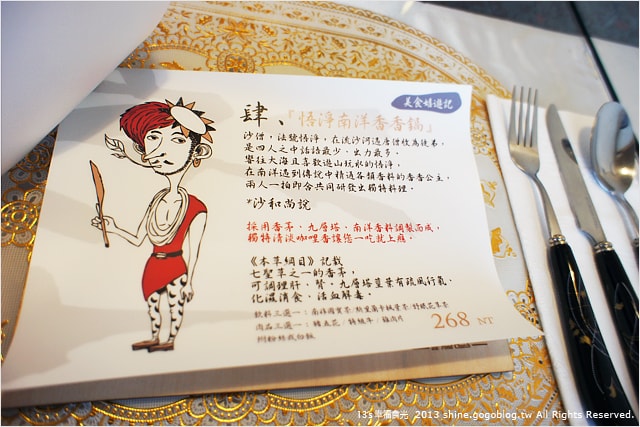 美食嬉遊記
肆、『悟淨南洋香香鍋』
沙僧，法號悟淨，在流沙河遇唐僧收為徒弟，
是四人之中話語最少，出力最多。
嚮往大海且喜歡遊山玩水的悟淨，
在南洋遇到傳說中精通各類香料的香香公主，
兩人一拍即合共同研發出獨特料理。
*沙和尚說
採用香茅、九層塔、南洋香料調製而成，
獨特清淡咖哩香讓您一吃就上癮。
《本草綱目》記載
七聖草之一的香茅，
可調理肝、腎。九層塔莖葉有疏風行氣，
化濕消食，活血解毒。
飲料三選一：南非國寶茶/
肉品三選一：
附粉絲或白飯
268 NT
13's幸福食光 2013 shine.gogoblog.tw All Rights Reserved.